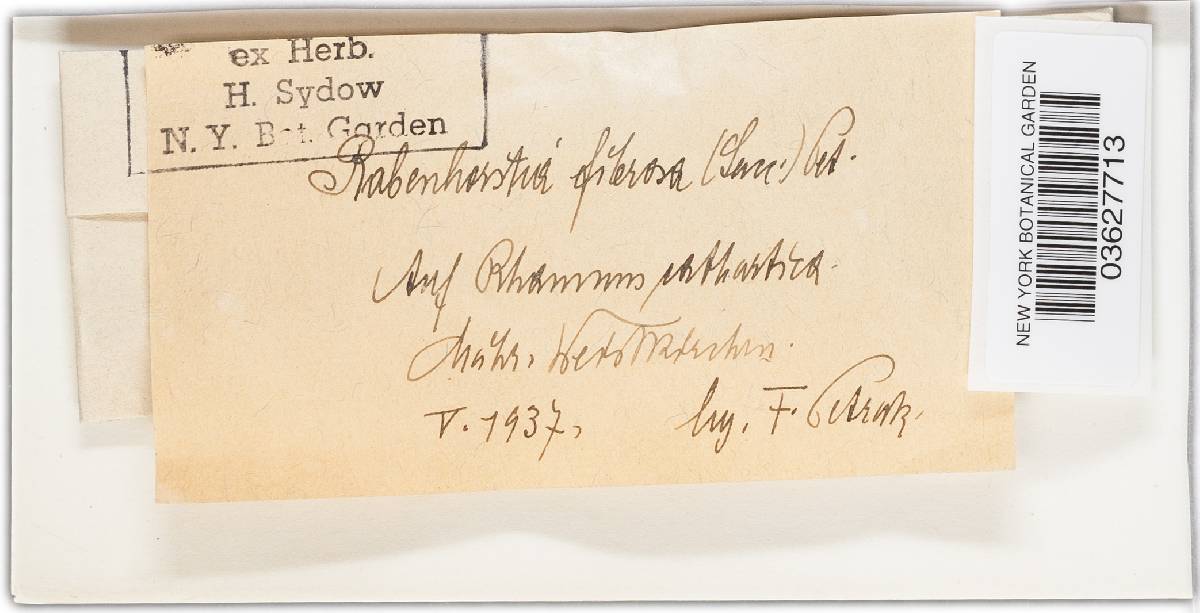 ex Herb.
H. Sydow
N. Y. Bot. Garden
Rabenhorstia fibrosa (Sacc.) Pet.
Auf Rhamnus cathartica.
Mähr. Weisskirchen.
V. 1937. leg. F. Petrak.
NEW YORK BOTANICAL GARDEN
03627713